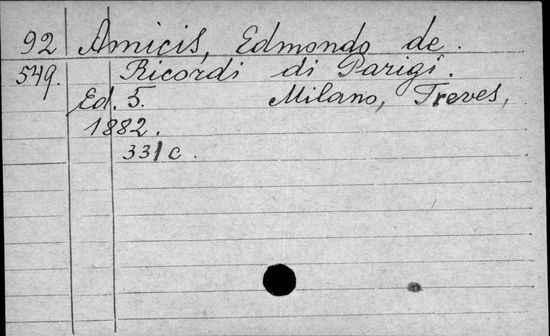 92 Amicis, Edmondo de.
549. Ricordi di Parigi.
Ed. 5. Milano, Treves,
1882.
331 c.